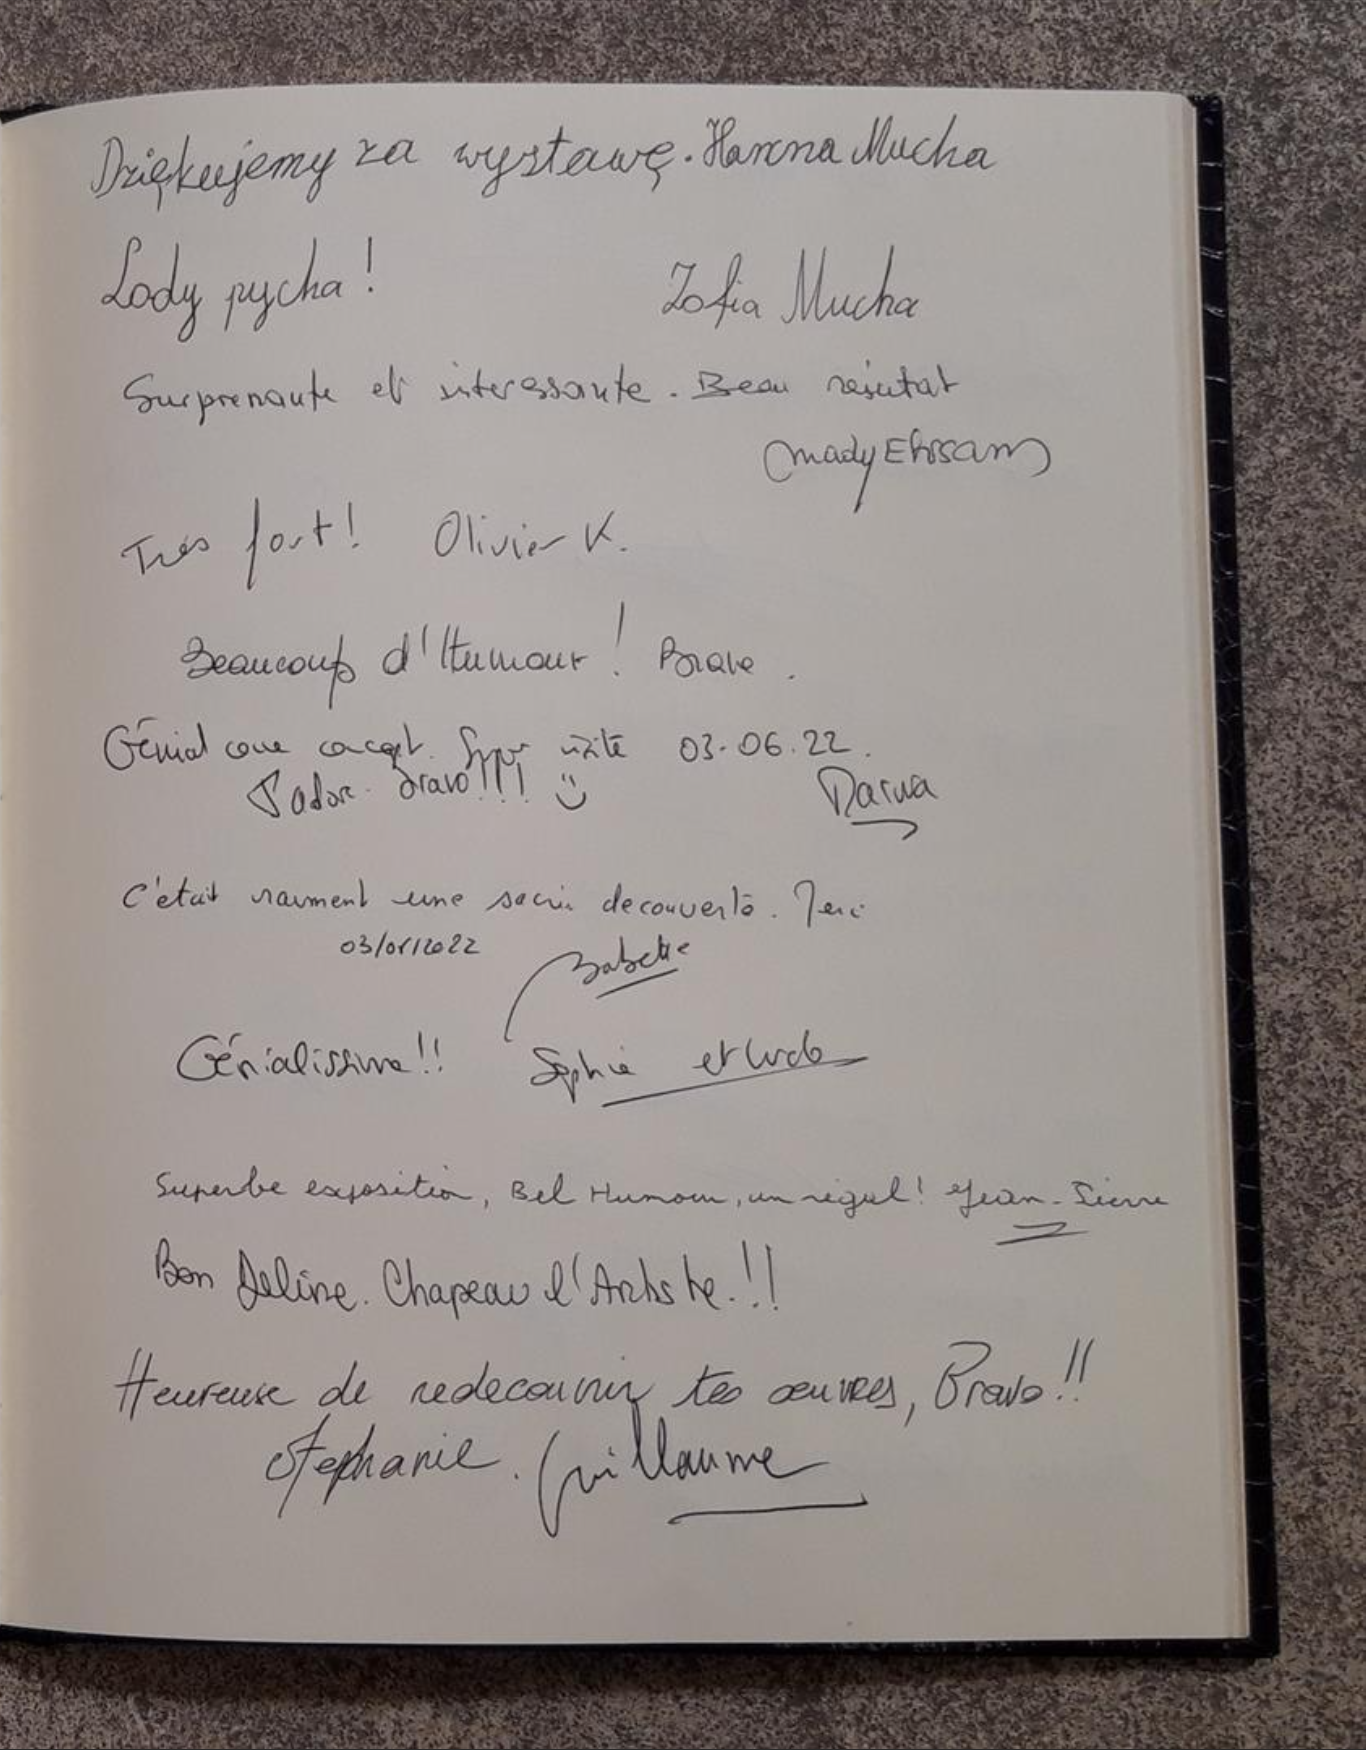 Dziękujemy za wystawę. Hanna Mucha
Lody pycha! Zofia Mucha
Surprenante et interessante. Beau résultat
Mady Ehrsam
Très fort! Olivier K.
Beaucoup d'Humour! Bravo.
Génial comme concept. Super visite 03.06.22.
J'adore. Bravo!!! :)
C'était vraiment une decouverte. Merci
Babette
Génialissime!! Sophie et
Superbe exposition, Bel Humour, un régal! Jean-Pierre
Bon Délire. Chapeau l'Artiste.!!
Heureuse de redecouvrir tes œuvres, Bravo!!
Stephanie. Guillaume